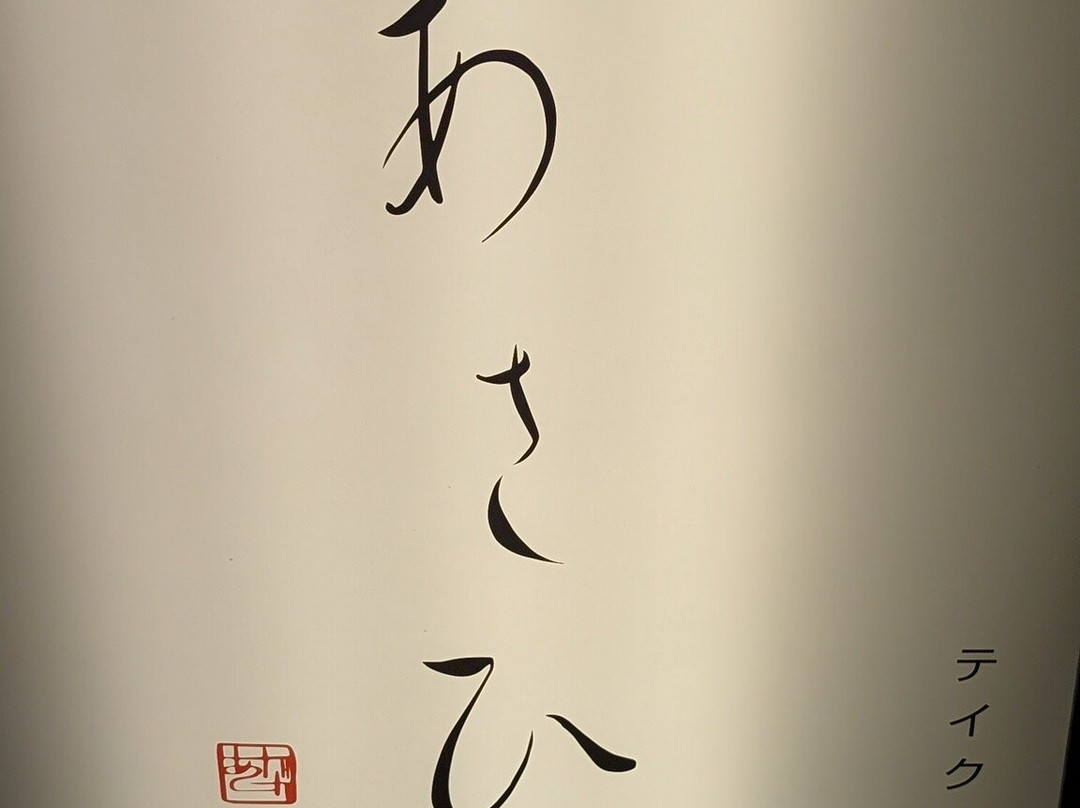 あさひ
テイク